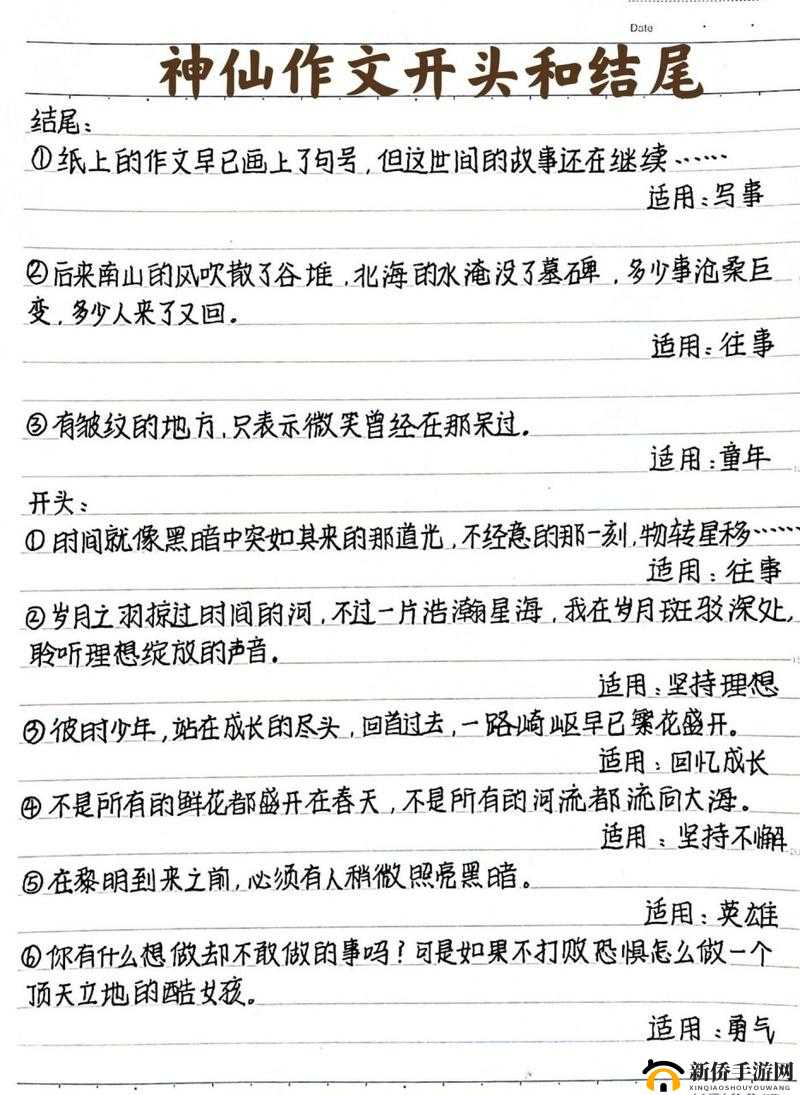 Date
神仙作文开头和结尾
结尾:
①纸上的作文早已画上了句号,但这世间的故事还在继续……
适用:写事
②后来南山的风吹散了谷堆,北海的水淹没了墓碑,多少事沧桑巨
变,多少人来了又回。
适用:往事
③有皱纹的地方,只表示微笑曾经在那呆过。
适用:童年
开头:
①时间就像黑暗中突如其来的那道光,不经意的那一刻,物转星移……
适用:往事
②岁月之羽掠过时间的河,不过一片浩瀚星海,我在岁月斑驳深处,
聆听理想绽放的声音。
适用:坚持理想
③彼时少年,站在成长的尽头,回首过去,一路崎岖早已繁花盛开。
适用:回忆成长
④不是所有的鲜花都盛开在春天,不是所有的河流都流向大海。
适用:坚持不懈
⑤在黎明到来之前,必须有人稍微照亮黑暗。
适用:英雄
⑥你有什么想做却不敢做的事吗?可是如果不打败恐惧怎么做一个
顶天立地的酷女孩。
适用:勇气
新侨手游网
XINQIAOSHOUYOUWANG